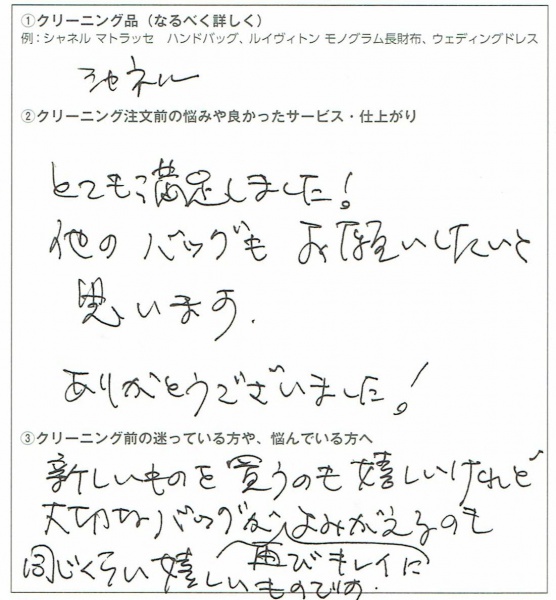 ①クリーニング品（なるべく詳しく）
例：シャネル マトラッセ　ハンドバッグ、ルイヴィトン モノグラム長財布、ウェディングドレス
シャネル
②クリーニング注文前の悩みや良かったサービス・仕上がり
とても満足しました！
他の バッグも お願いしたいと
思います.
ありがとうございました！
③クリーニング前の迷っている方や、悩んでいる方へ
新しいものを買うのも嬉しいけれど
大切なバッグが よみがえるのも
再びキレイに
同じくらい嬉しいものですね.